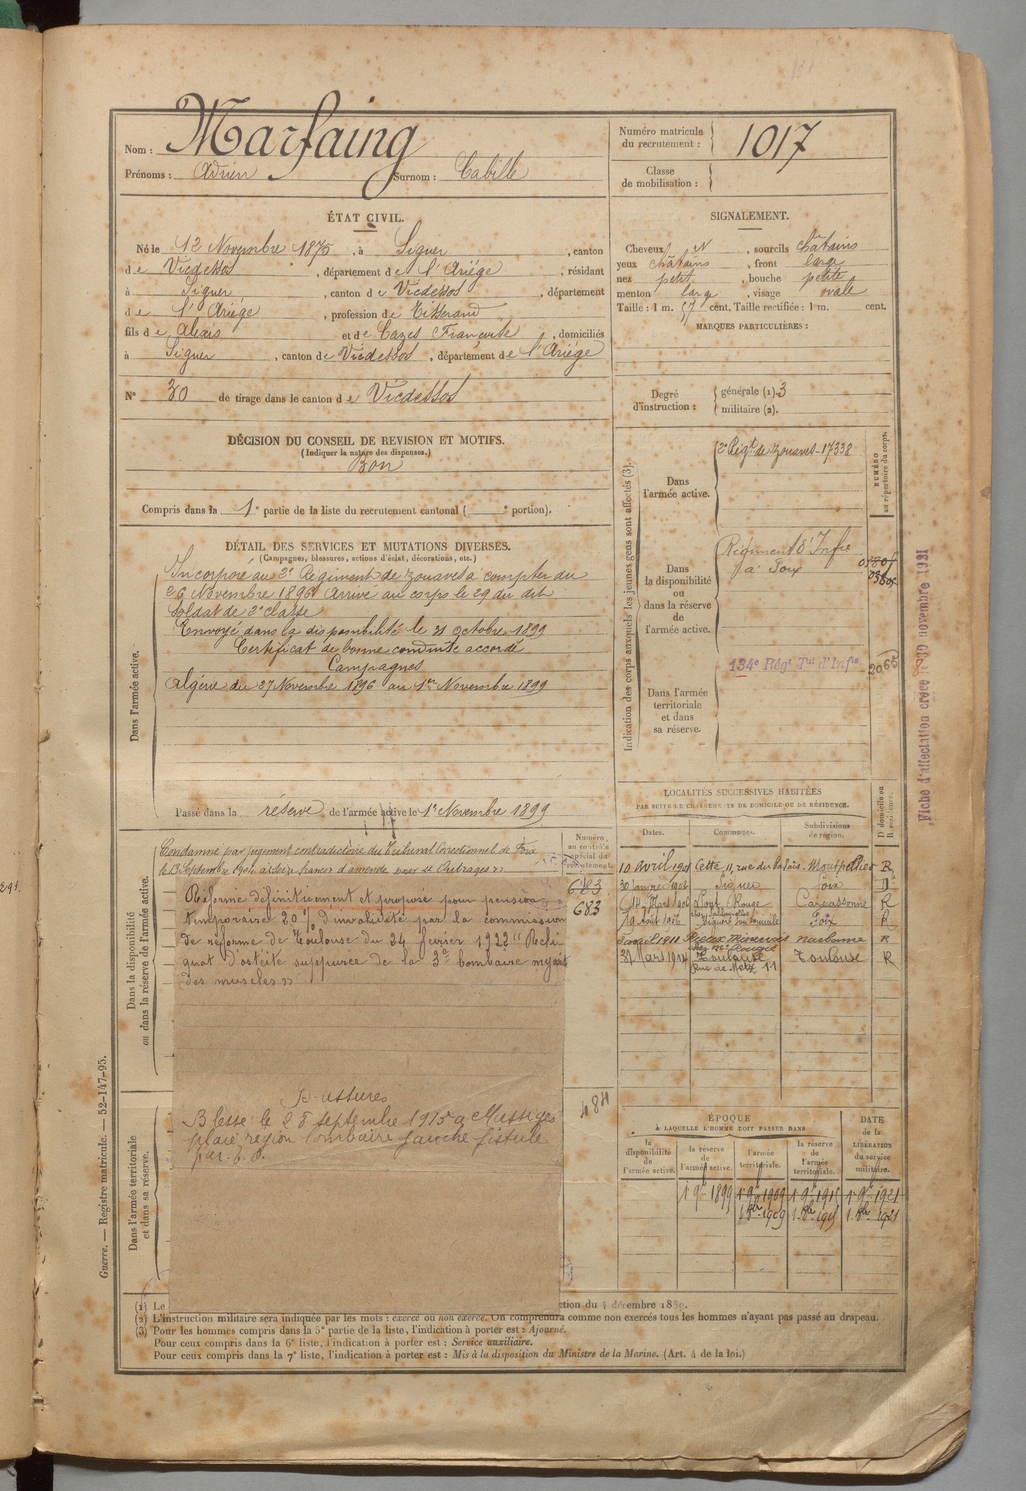 Marfaing
Nom :
Prénoms : Adrien Surnom : Cabille
Numéro matricule du recrutement : 1017
Classe de mobilisation :
ÉTAT CIVIL.
Né le 12 Novembre 1875, à Siguer, canton
de Vicdessos, département de l'Ariége, résidant
à Siguer, canton de Vicdessos, département
de l'Ariége, profession de Tisserand
fils de Alexis et de Cazes Françoise, domiciliés
à Siguer, canton de Vicdessos, département de l'Ariége
N° 30 de tirage dans le canton de Vicdessos
SIGNALEMENT.
Cheveux N, sourcils châtains
yeux châtains, front large
nez petit, bouche petite
menton large, visage ovale
Taille : 1 m. 57 cent. Taille rectifiée : 1 m. cent.
MARQUES PARTICULIÈRES :
Degré d'instruction : générale (1). 3
militaire (2).
DÉCISION DU CONSEIL DE REVISION ET MOTIFS.
(Indiquer la nature des dispenses.)
Bon
Compris dans la 1e partie de la liste du recrutement cantonal ( e portion).
DÉTAIL DES SERVICES ET MUTATIONS DIVERSES.
(Campagnes, blessures, actions d'éclat, décorations, etc.)
Dans l'armée active.
Incorporé au 2e Régiment de Zouaves à compter du
26 Novembre 1896 Arrivé au corps le 29 du dit
Soldat de 2e classe
Envoyé dans la disponibilité le 31 octobre 1899
Certificat de bonne conduite accordé
Campagnes
Algérie du 27 Novembre 1896 au 1er Novembre 1899
Passé dans la réserve de l'armée active le 1er Novembre 1899
Indication des corps auxquels les jeunes gens sont affectés (3).
NUMÉRO au répertoire du corps.
Dans l'armée active.
2e Régt de Zouaves - 17338
Dans la disponibilité ou dans la réserve de l'armée active.
Régiment d'Infie
à Foix
Dans l'armée territoriale et dans sa réserve.
134e Régt Tal d'Infie
2065
Fiche d'affectation créée le 30 novembre 1921
Dans la disponibilité ou dans la réserve de l'armée active.
Condamné par jugement contradictoire du Tribunal Correctionnel de Foix
le 13 Septembre 1904 à seize francs d'amende pour "Outrages"
Numéro au contrôle spécial du recrutement
683
683
Réformé définitivement et proposé pour pension
temporaire 20% d'invalidité par la commission
de réforme de Toulouse du 24 février 1922 "Reli
quat d'ostéite suppurée de la 3e lombaire myosite
des muscles"
484
Blessures
Blessé le 28 septembre 1915 à Massiges
plaie région lombaire gauche fistule
par. E. O.
Dans l'armée territoriale et dans sa réserve.
LOCALITÉS SUCCESSIVES HABITÉES
PAR SUITE DE CHANGEMENTS DE DOMICILE OU DE RÉSIDENCE.
D domicile ou R résidence
Dates. Communes. Subdivisions de région.
10 avril 1901 Cette, 11, rue du Palais Montpellier R
30 janvier 1904 Siguer Foix D
14 Mars 1906 Pont Rouge Carcassonne R
19 Août 1906 Foix R
5 avril 1911 Rieux Minervois Narbonne R
31 Mars 1914 Toulouse Toulouse R
Rue de Metz 11
ÉPOQUE
À LAQUELLE L'HOMME DOIT PASSER DANS
DATE de la LIBÉRATION du service militaire.
la disponibilité de l'armée active.
la réserve de l'armée active.
l'armée territoriale.
la réserve de l'armée territoriale.
1 9bre 1899 1 9bre 1909 1 9bre 1915 1 9bre 1921
1. 8bre 1909 1. 8bre 1915 1. 8bre 1921
Guerre. — Registre matricule. — 52-147-95.
(1) Le
(2) L'instruction militaire sera indiquée par les mots : exercé ou non exercé. On comprendra comme non exercés tous les hommes n'ayant pas passé au drapeau.
(3) Pour les hommes compris dans la 5e partie de la liste, l'indication à porter est : Ajourné.
Pour ceux compris dans la 6e liste, l'indication à porter est : Service auxiliaire.
Pour ceux compris dans la 7e liste, l'indication à porter est : Mis à la disposition du Ministre de la Marine. (Art. 4 de la loi.)